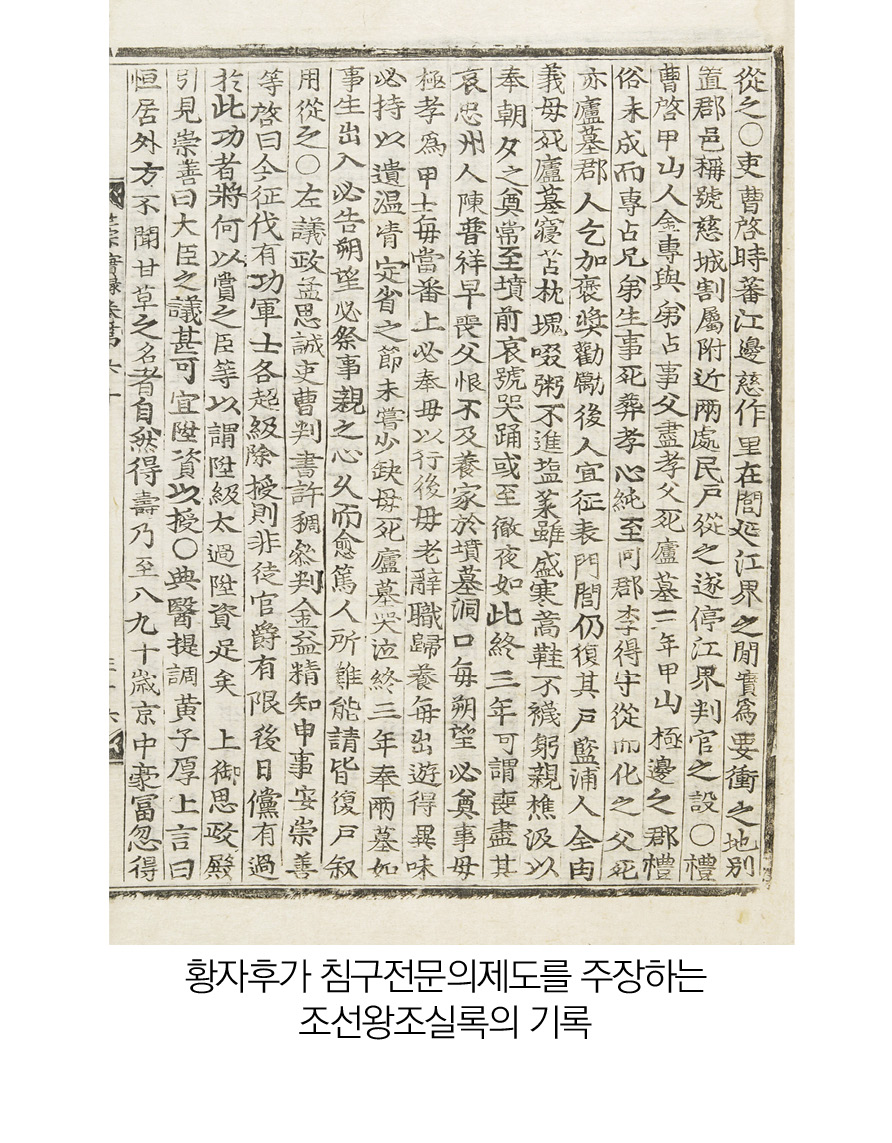 從之○吏曹啓時蕃江邊慈作里在閭延江界之閒實爲要衝之地別
置郡邑稱號慈城割屬附近兩處民戶從之遂停江界判官之設○禮
曹啓甲山人金專與弟占事父盡孝父死廬墓三年甲山極邊之郡禮
俗未成而專占兄弟生事死葬孝心純至同郡李得守從而化之父死
亦廬墓郡人乞加褒奬勸勵後人宜征表門閭仍復其戶藍浦人全由
義母死廬墓寢苫枕塊啜粥不進塩菜雖盛寒蒿鞋不襪躬親樵汲以
奉朝夕之奠常至墳前哀號哭踊或至徹夜如此終三年可謂喪盡其
哀忠州人陳普祥早喪父恨不及養家於墳墓洞口每朔望必奠事母
極孝爲甲士每當番上必奉母以行後母老辭職歸養每出遊得異味
必持以遺溫凊定省之節未嘗少缺母死廬墓哭泣終三年奉兩墓如
事生出入必告朔望必祭事親之心久而愈篤人所難能請皆復戶敍
用從之○左議政孟思誠吏曹判書許稠參判金益精知申事安崇善
等啓曰今征伐有功軍士各超級除授則非徒官爵有限後日儻有過
於此功者將何以賞之臣等以謂陞級太過陞資足矣 上御思政殿
引見崇善曰大臣之議甚可宜陞資以授○典醫提調黃子厚上言曰
恒居外方不聞甘草之名者自然得壽乃至八九十歲京中豪富忽得
황자후가 침구전문의제도를 주장하는
조선왕조실록의 기록